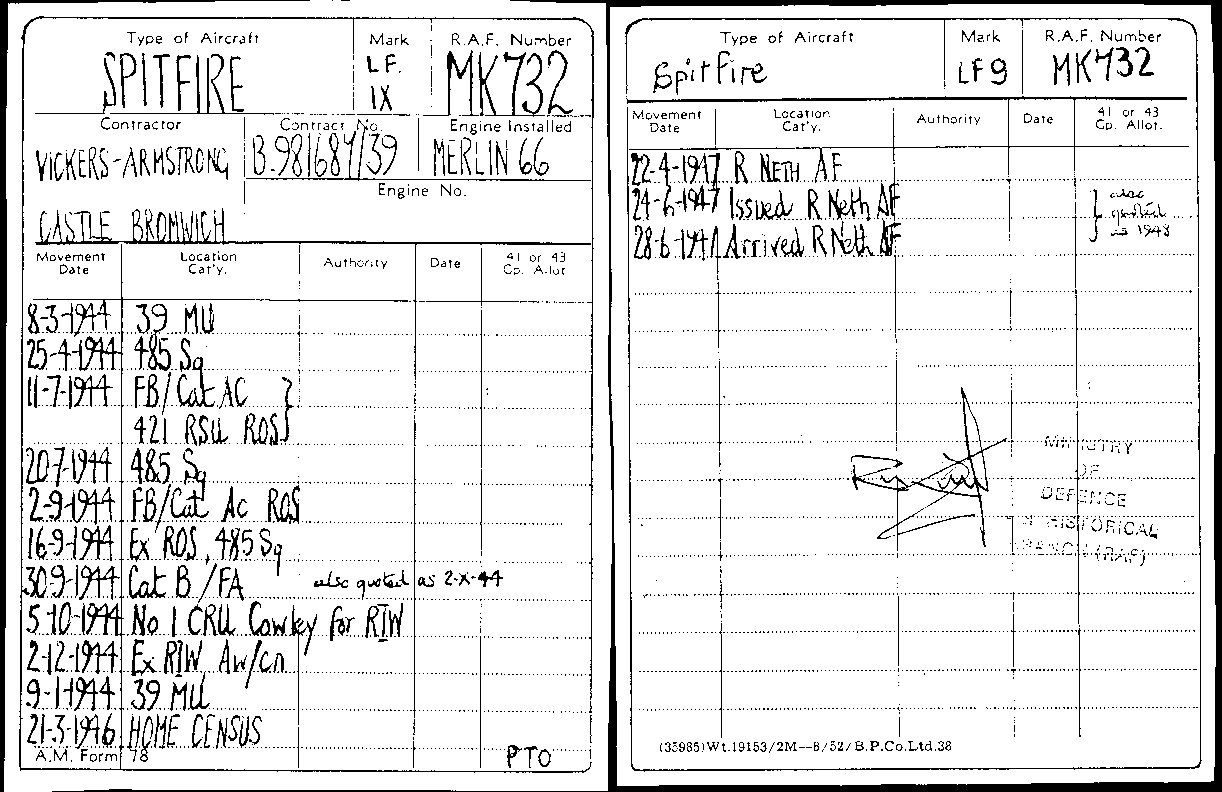 Type of Aircraft Mark R.A.F. Number
SPITFIRE LF. IX MK732
Contractor Contract No. Engine Installed
VICKERS-ARMSTRONG B.981687/39 MERLIN 66
Engine No.
CASTLE BROMWICH
Movement Date Location Cat'y. Authority Date 41 or 43 Cp. Allot
8-3-1944 39 MU
25-4-1944 485 Sq
11-7-1944 FB/Cat AC }
421 RSU ROS }
20-7-1944 485 Sq
2-9-1944 FB/Cat Ac ROS
16-9-1944 Ex ROS, 485 Sq
30-9-1944 Cat B /FA also quoted as 2-X-44
5-10-1944 No 1 CRU Cowley for RIW
2-12-1944 Ex RIW Aw/cn
9-1-1944 39 MU
21-3-1946 HOME CENSUS
A.M. Form 78 PTO
Type of Aircraft Mark R.A.F. Number
Spitfire LF9 MK732
Movement Date Location Cat'y. Authority Date 41 or 43 Cp. Allot.
22-4-1947 R NETH AF
24-6-1947 Issued R Neth AF } also quoted as 1948
28-6-1947 Arrived R Neth AF
MINISTRY
OF
DEFENCE
HISTORICAL
BRANCH (RAF)
(35985) Wt.19153/2M—8/52/B.P.Co.Ltd.38